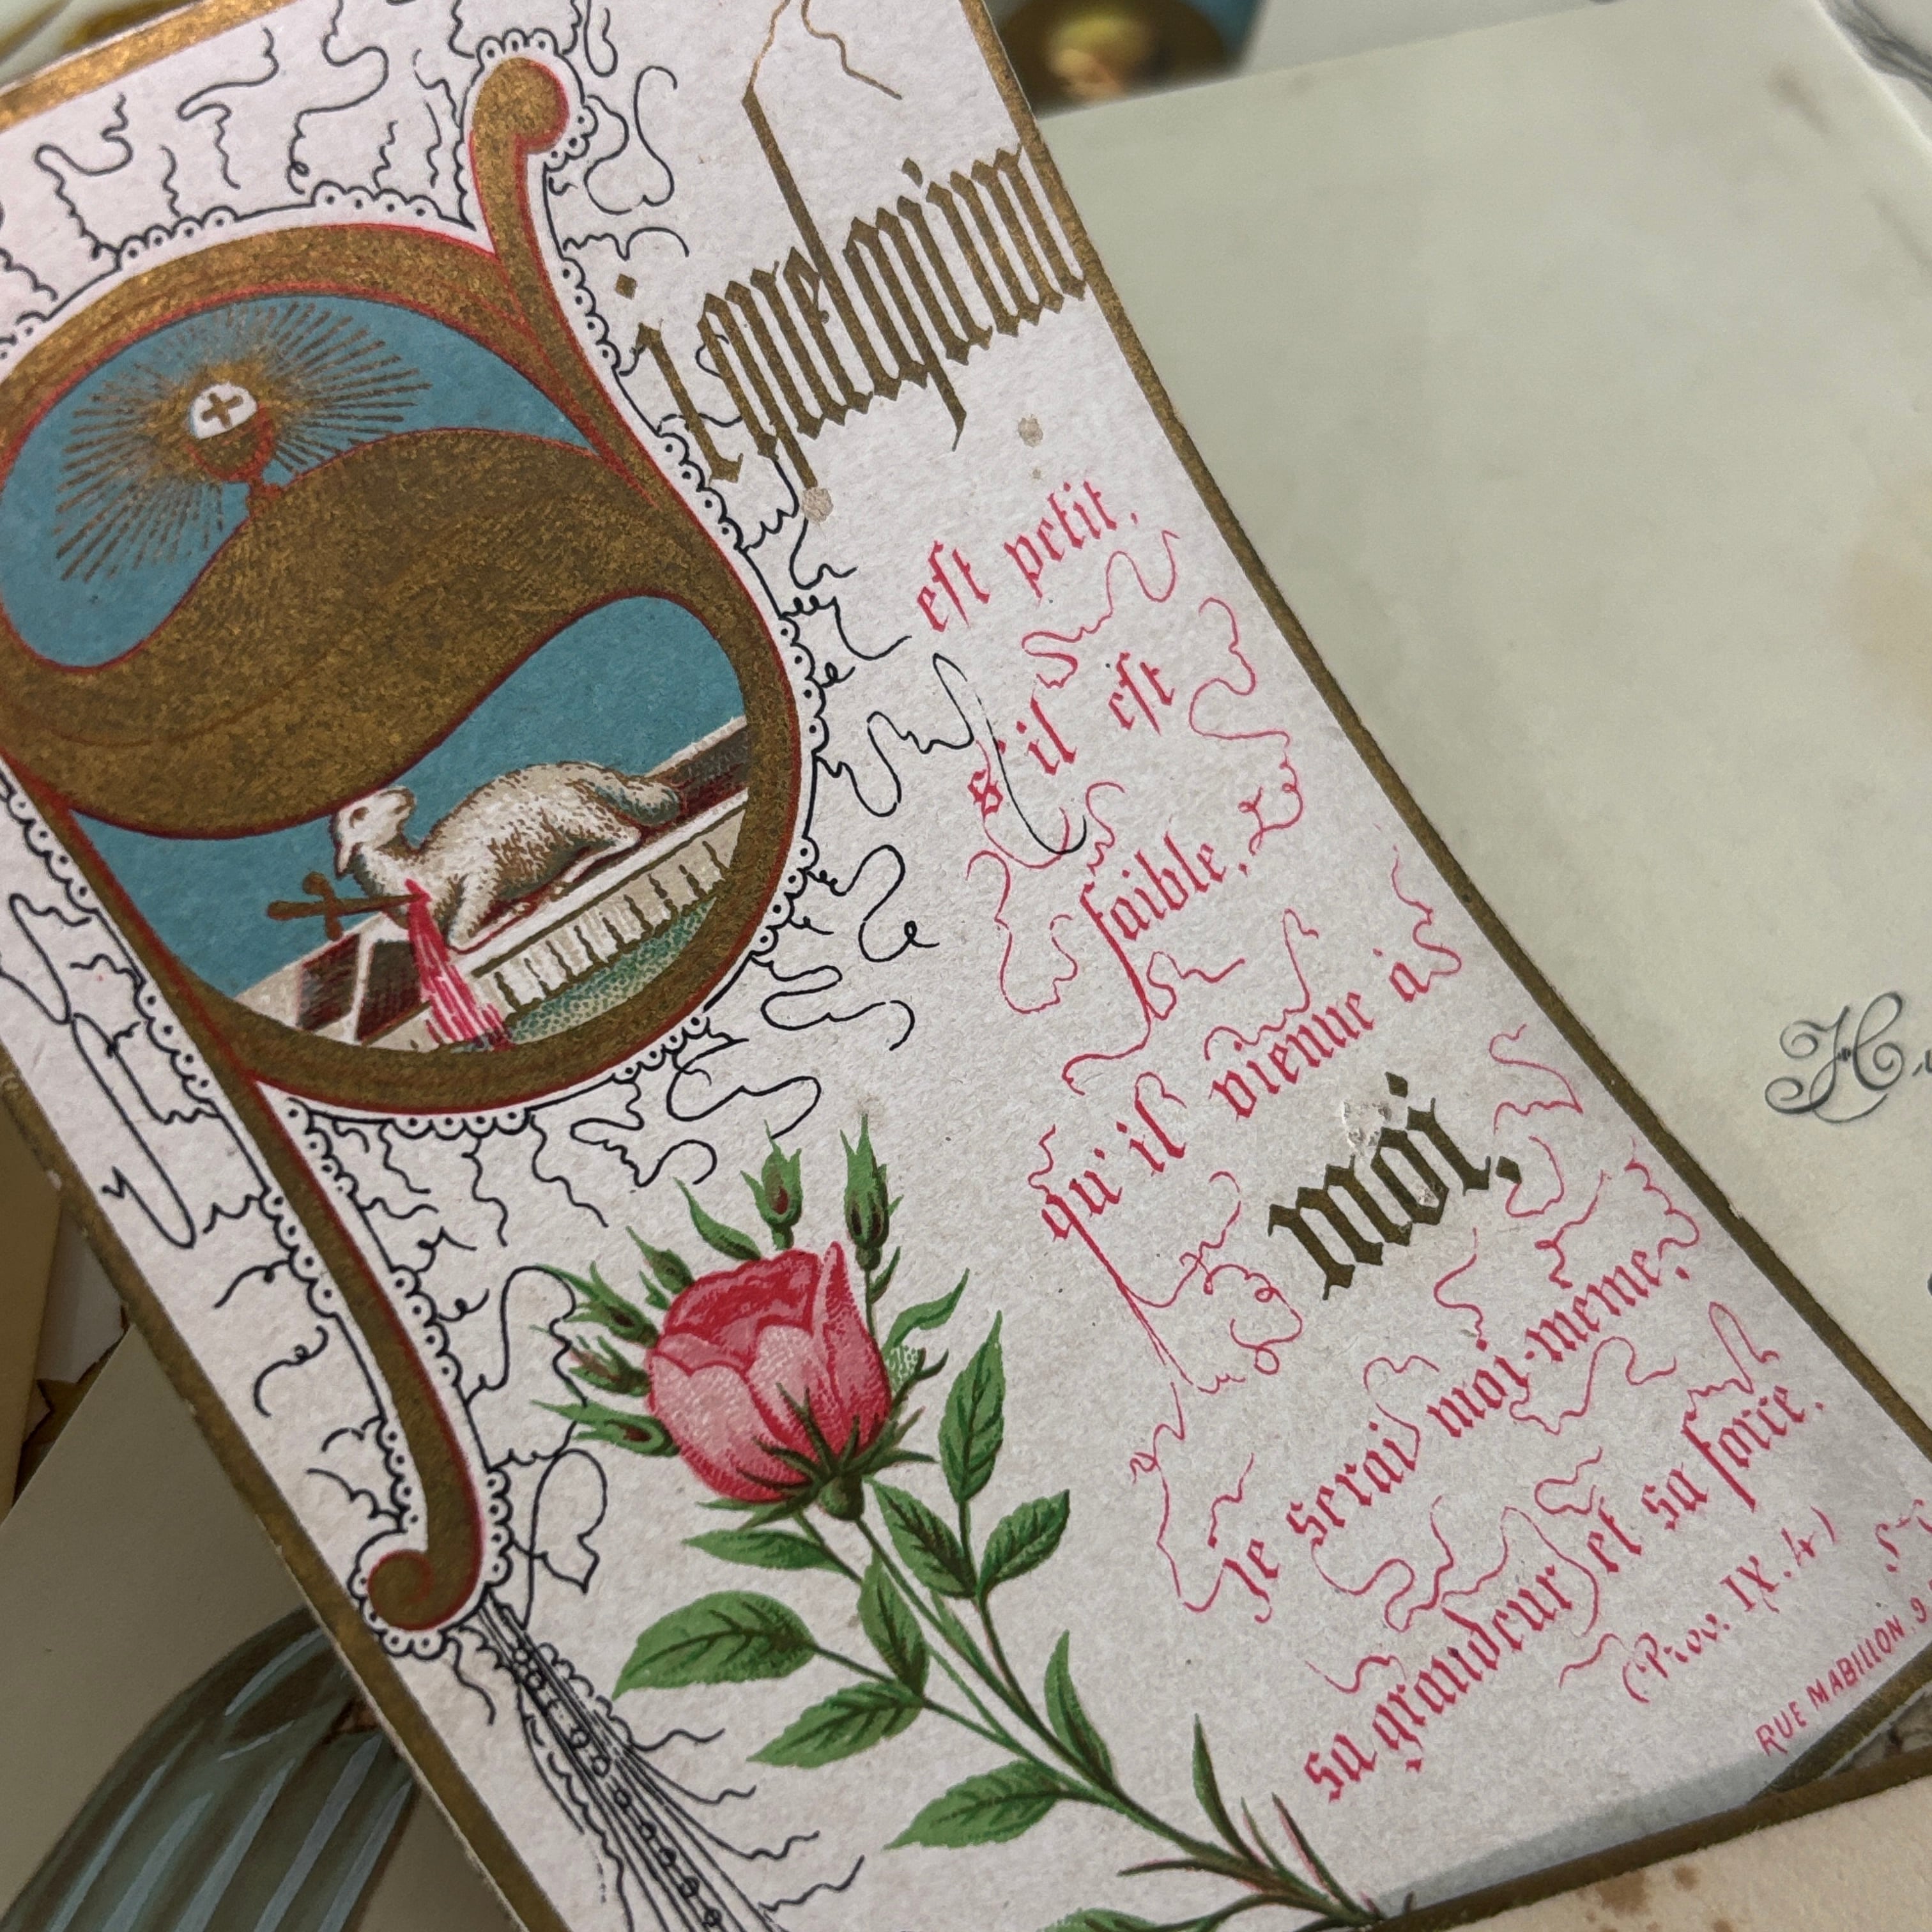 Si quelqu'un
est petit,
s'il est
faible,
qu'il vienne à
moi,
Je serai moi-même,
sa grandeur et sa force.
(Prov. IX. 4)
RUE MABILLON. 9